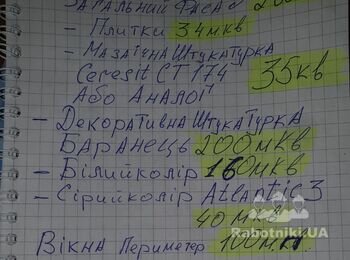 Загальний Фасад 200
- Плитки 34 мкв
- Мозаїчна Штукатурка
Ceresit CT 174 35кв
Або Аналог
- Декоративна Штукатурка
Баранець 200мкв
- Білий колір 160мкв
- Сірий колір Atlantic 3
40 мкв
Вікна Периметер 100м.п
Rabotniki.UA